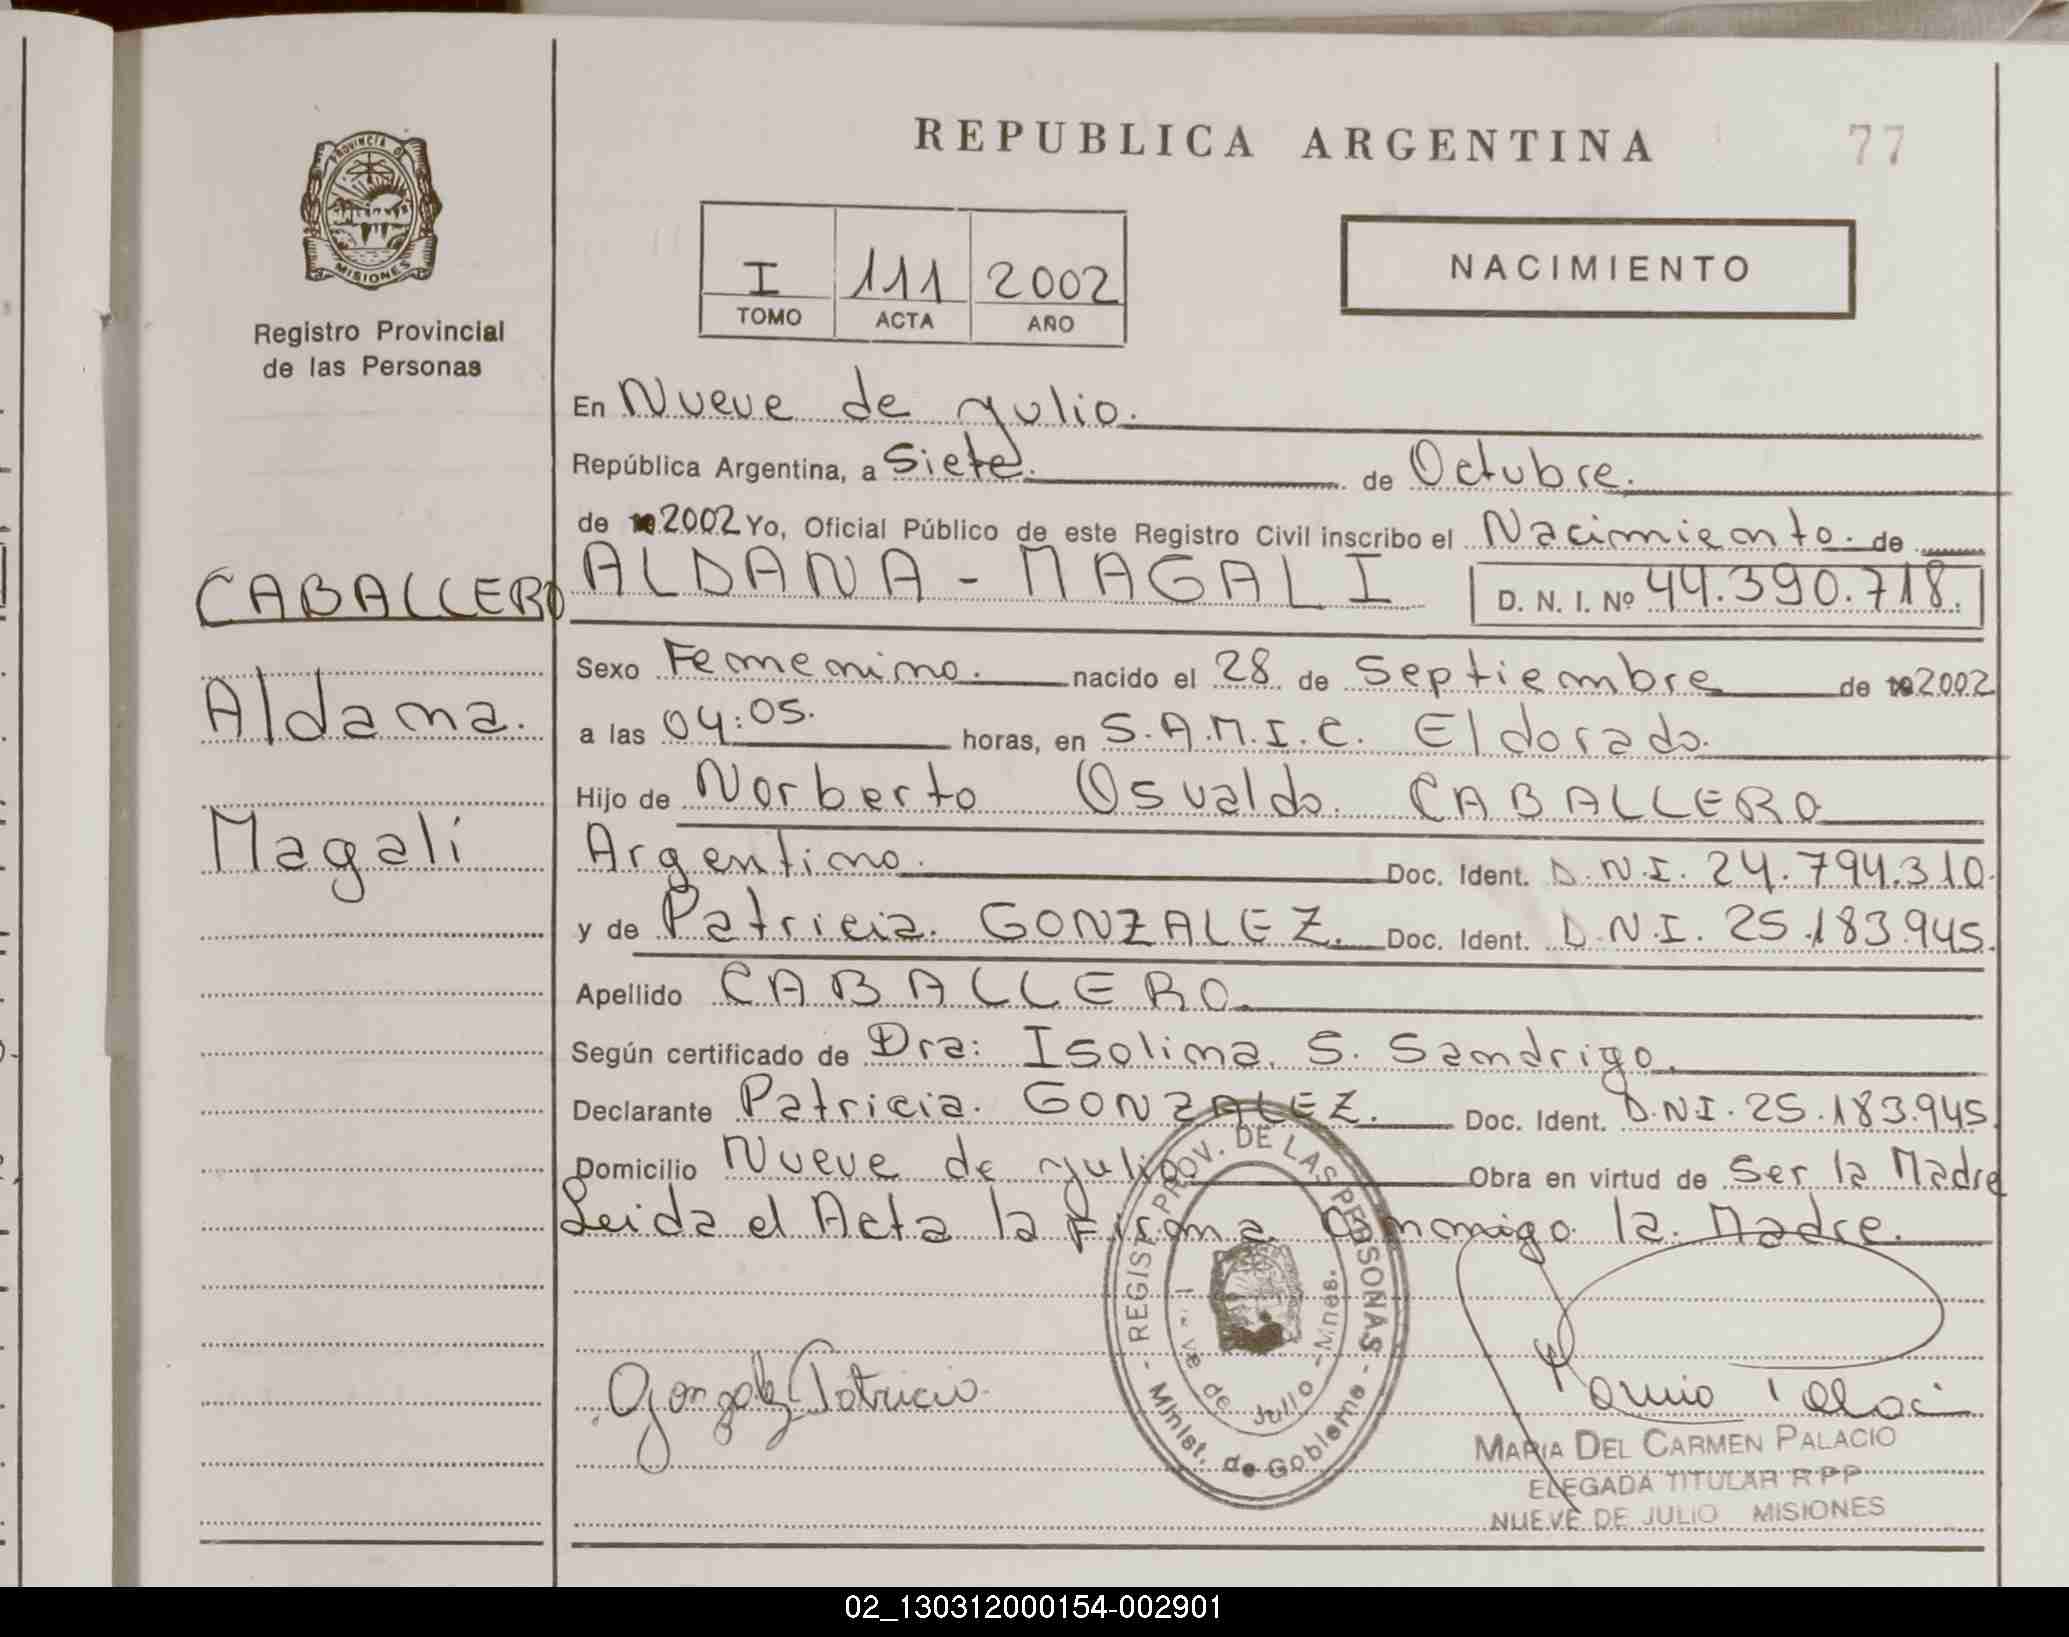 REPUBLICA ARGENTINA
77
PROVINCIA DE
MISIONES
Registro Provincial
de las Personas
I 111 2002
TOMO ACTA AÑO
NACIMIENTO
En Nueve de Julio.
República Argentina, a Siete. de Octubre.
de 2002 Yo, Oficial Público de este Registro Civil inscribo el Nacimiento. de
CABALLERO
Aldana.
Magalí
ALDANA - MAGALI D. N. I. Nº 44.390.718.
Sexo Femenino. nacido el 28 de Septiembre de 2002
a las 04:05. horas, en S.A.M.I.C. Eldorado.
Hijo de Norberto Osvaldo. CABALLERO
Argentino. Doc. Ident. D.N.I. 24.794.310.
y de Patricia. GONZALEZ. Doc. Ident. D.N.I. 25.183.945.
Apellido CABALLERO.
Según certificado de Dra: Isolina. S. Sandrigo.
Declarante Patricia. GONZALEZ. Doc. Ident. D.N.I. 25.183.945
Domicilio Nueve de Julio. Obra en virtud de Ser la Madre
Leida el Acta la Firma Conmigo. la. Madre.
Gonzalez Patricia
- REGIST. PROV. DE LAS PERSONAS -
Minist. de Gobierno
ve de Julio - Mnes.
MARIA DEL CARMEN PALACIO
ELEGADA TITULAR RPP
NUEVE DE JULIO MISIONES
02_130312000154-002901